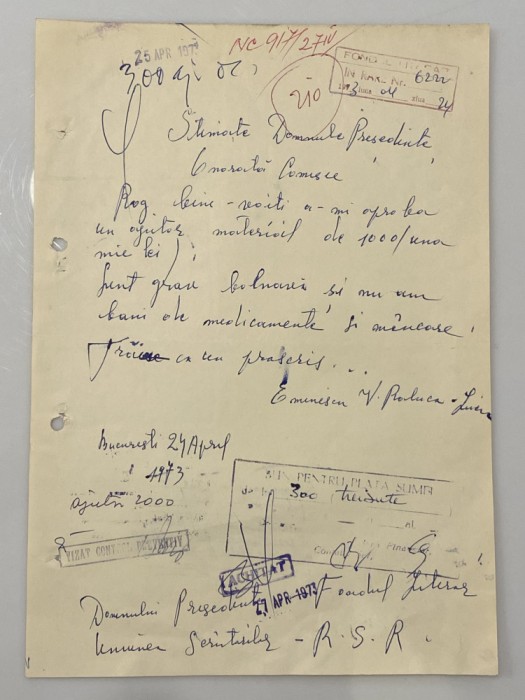 25 APR 1973
NC 917/27 IV
300 aj oc
FONDUL LITERAR
INTRARE Nr. 6222
1973 luna 04 ziua 24
210
Stimate Domnule Președinte
Onorată Comisie
Rog bine-voiți a-mi aproba
un ajutor material de 1000/una
mie lei)
Sunt grav bolnavă și nu am
bani de medicamente și mâncare,
Trăiesc ca un proscris...
Eminescu V. Raluca-
București 24 April
1973
ajutor 2000
BUN PENTRU PLATA SUMEI
de lei 300 treisute
VIZAT CONTROL PREVENTIV
ACHITAT
27 APR 1973
Domnului Președinte Fondul Literar
Uniunea Scriitorilor - R.S.R.